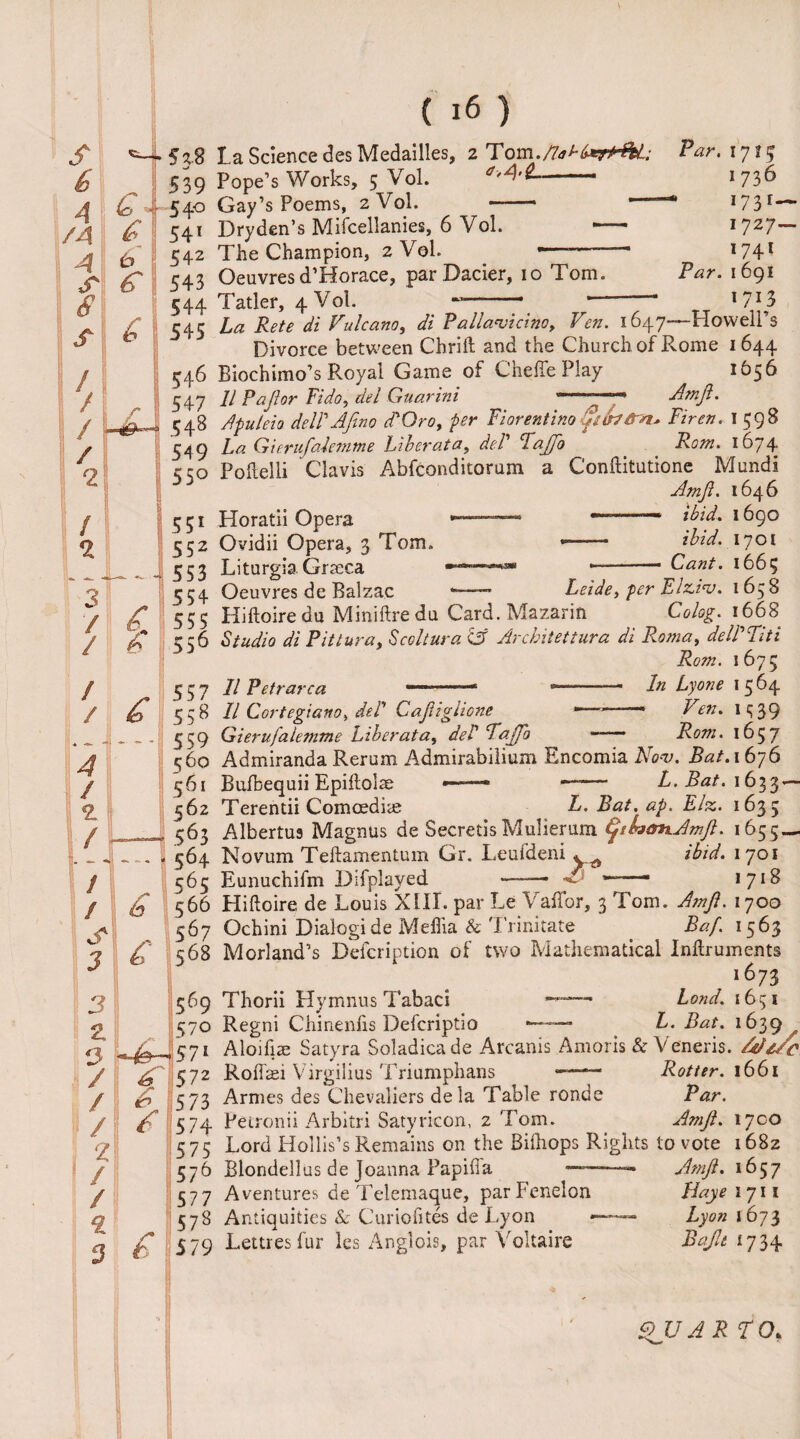 ( 16 )
5 — 538 La Science des Medailles, 2 Tom. Par. 1715
6 539 Pope's Works, 5 Vol. —— 1736
4 6 540 Gay's Poems, 2 Vol. —— —— 1731—
14 6 541 Dryden's Miſcellanies, 6 Vol. —— 1727—
4 6 542 The Champion, 2 Vol. —— 1741
5 6 543 Oeuvres d'Horace, par Dacier, 10 Tom. Par. 1691
8 544 Tatler, 4 Vol. —— —— 1713
5 6 545 La Rete di Vulcano, di Pallavicino, Ven. 1647—Howell's
Divorce between Chriſt and the Church of Rome 1644
1 546 Biochimo's Royal Game of Cheſſe Play 1656
1 547 Il Paſtor Fido, del Guarini —— Amſt.
1 6 548 Apuleio dell' Aſino d'Oro, per Fiorentino Firen. 1598
1 549 La Gieruſalemme Liberata, del' Taſſo Rom. 1674
2 550 Poſtelli Clavis Abſconditorum a Conſtitutione Mundi
Amſt. 1646
1 551 Horatii Opera —— —— ibid. 1690
2 552 Ovidii Opera, 3 Tom. —— ibid. 1701
553 Liturgia Græca —— —— Cant. 1665
3 554 Oeuvres de Balzac —— Leide, per Elziv. 1658
1 6 555 Hiſtoire du Miniſtre du Card. Mazarin Colog. 1668
1 6 556 Studio di Pittura, Scoltura & Architettura di Roma, dell' Titi
Rom. 1675
1 557 Il Petrarca —— —— In Lyone 1564
1 6 558 Il Cortegiano, del' Caſtiglione —— Ven. 1539
559 Gieruſalemme Liberata, del' Taſſo —— Rom. 1657
4 560 Admiranda Rerum Admirabilium Encomia Nov. Bat. 1676
1 561 Buſbequii Epiſtolæ —— —— L. Bat. 1633—
2 562 Terentii Comœdiæ L. Bat. ap. Elz. 1635
1 — 563 Albertus Magnus de Secretis Mulierum Amſt. 1655—
564 Novum Teſtamentum Gr. Leuſdeni ibid. 1701
1 565 Eunuchiſm Diſplayed —— —— 1718
1 6 566 Hiſtoire de Louis XIII. par Le Vaſſor, 3 Tom. Amſt. 1700
5 567 Ochini Dialogi de Meſſia & Trinitate Baſ. 1563
3 6 568 Morland's Deſcription of two Mathematical Inſtruments
1673
3 569 Thorii Hymnus Tabaci —— Lond. 1651
2 570 Regni Chinenſis Deſcriptio —— L. Bat. 1639
3 6 571 Aloiſiæ Satyra Soladica de Arcanis Amoris & Veneris.
1 6 572 Roſſæi Virgilius Triumphans —— Rotter. 1661
1 6 573 Armes des Chevaliers de la Table ronde Par.
1 6 574 Petronii Arbitri Satyricon, 2 Tom. Amſt. 1700
2 575 Lord Hollis's Remains on the Biſhops Rights to vote 1682
1 576 Blondellus de Joanna Papiſſa —— Amſt. 1657
1 577 Aventures de Telemaque, par Fenelon Haye 1711
2 578 Antiquities & Curioſités de Lyon —— Lyon 1673
3 6 579 Lettres ſur les Anglois, par Voltaire Baſle 1734
QUARTO.